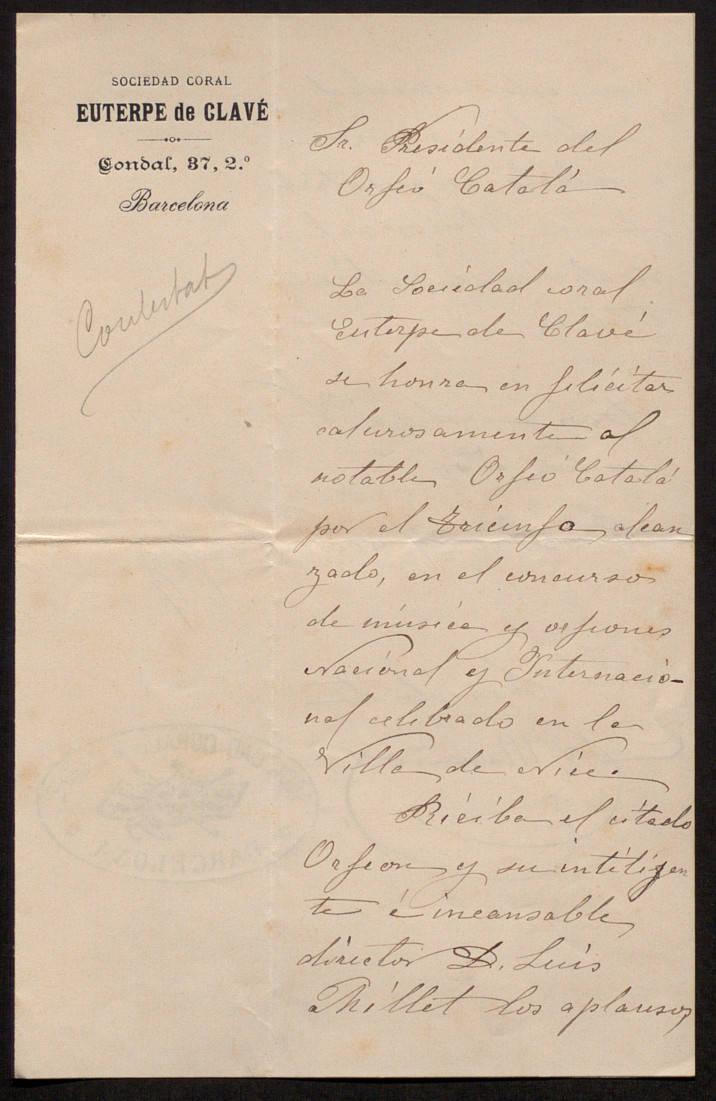 SOCIEDAD CORAL
EUTERPE de CLAVÉ
Condal, 37, 2.º
Barcelona
Contestat
Sr. Presidente del
Orfeó Catalá
La Sociedad coral
Euterpe de Clavé
se honra en felicitar
calurosamente al
notable Orfeó Catalá
por el triunfo alcan
zado, en el concurso
de música y orfeones
Nacional y Internacio-
nal celebrado en la
Villa de Nice
Reciba el citado
Orfeon y su inteligen
te é incansable
director D. Luis
Millet los aplausos